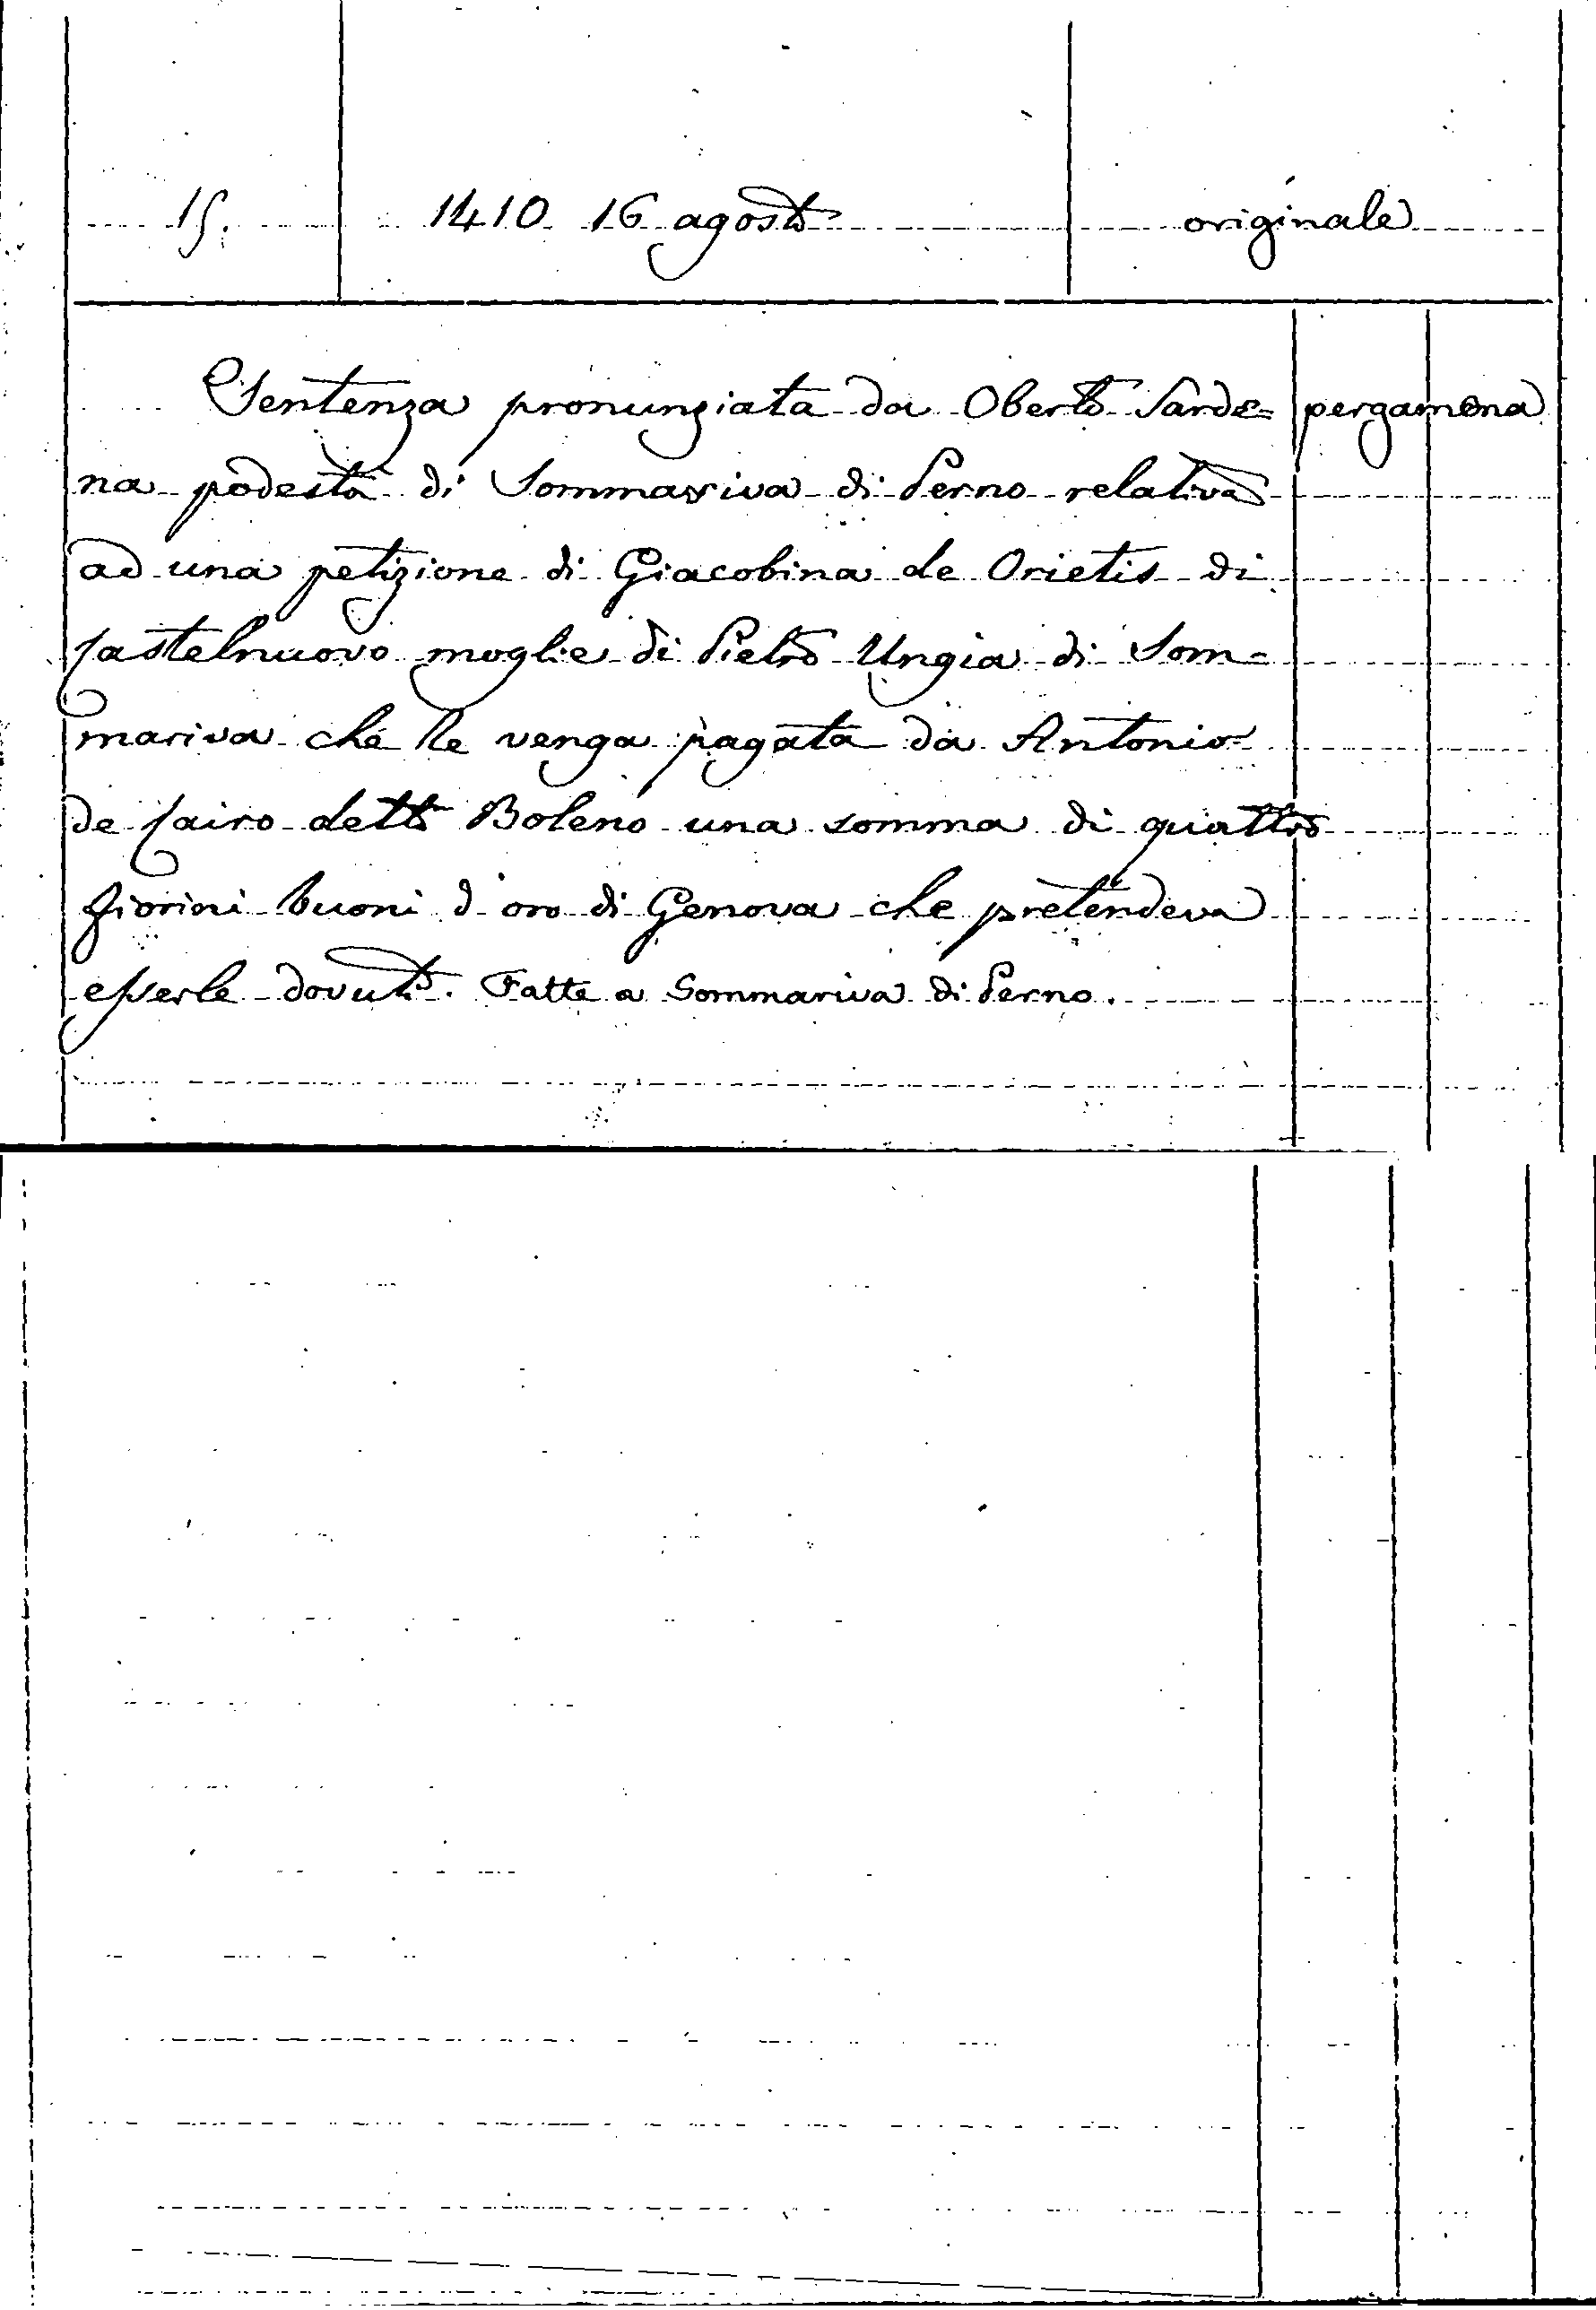 15. 1410 16 agosto originale
Sentenza pronunziata da Oberto Sarde= pergamena
na podestà di Sommariva di Perno relativa
ad una petizione di Giacobina de Orietis di
Castelnuovo moglie di Pietro Ungia di Som=
mariva che le venga pagata da Antonio
de Cairo detto Boleno una somma di quattro
fiorini buoni d'oro di Genova che pretendeva
esserle dovuto. Fatte a Sommariva di Perno.